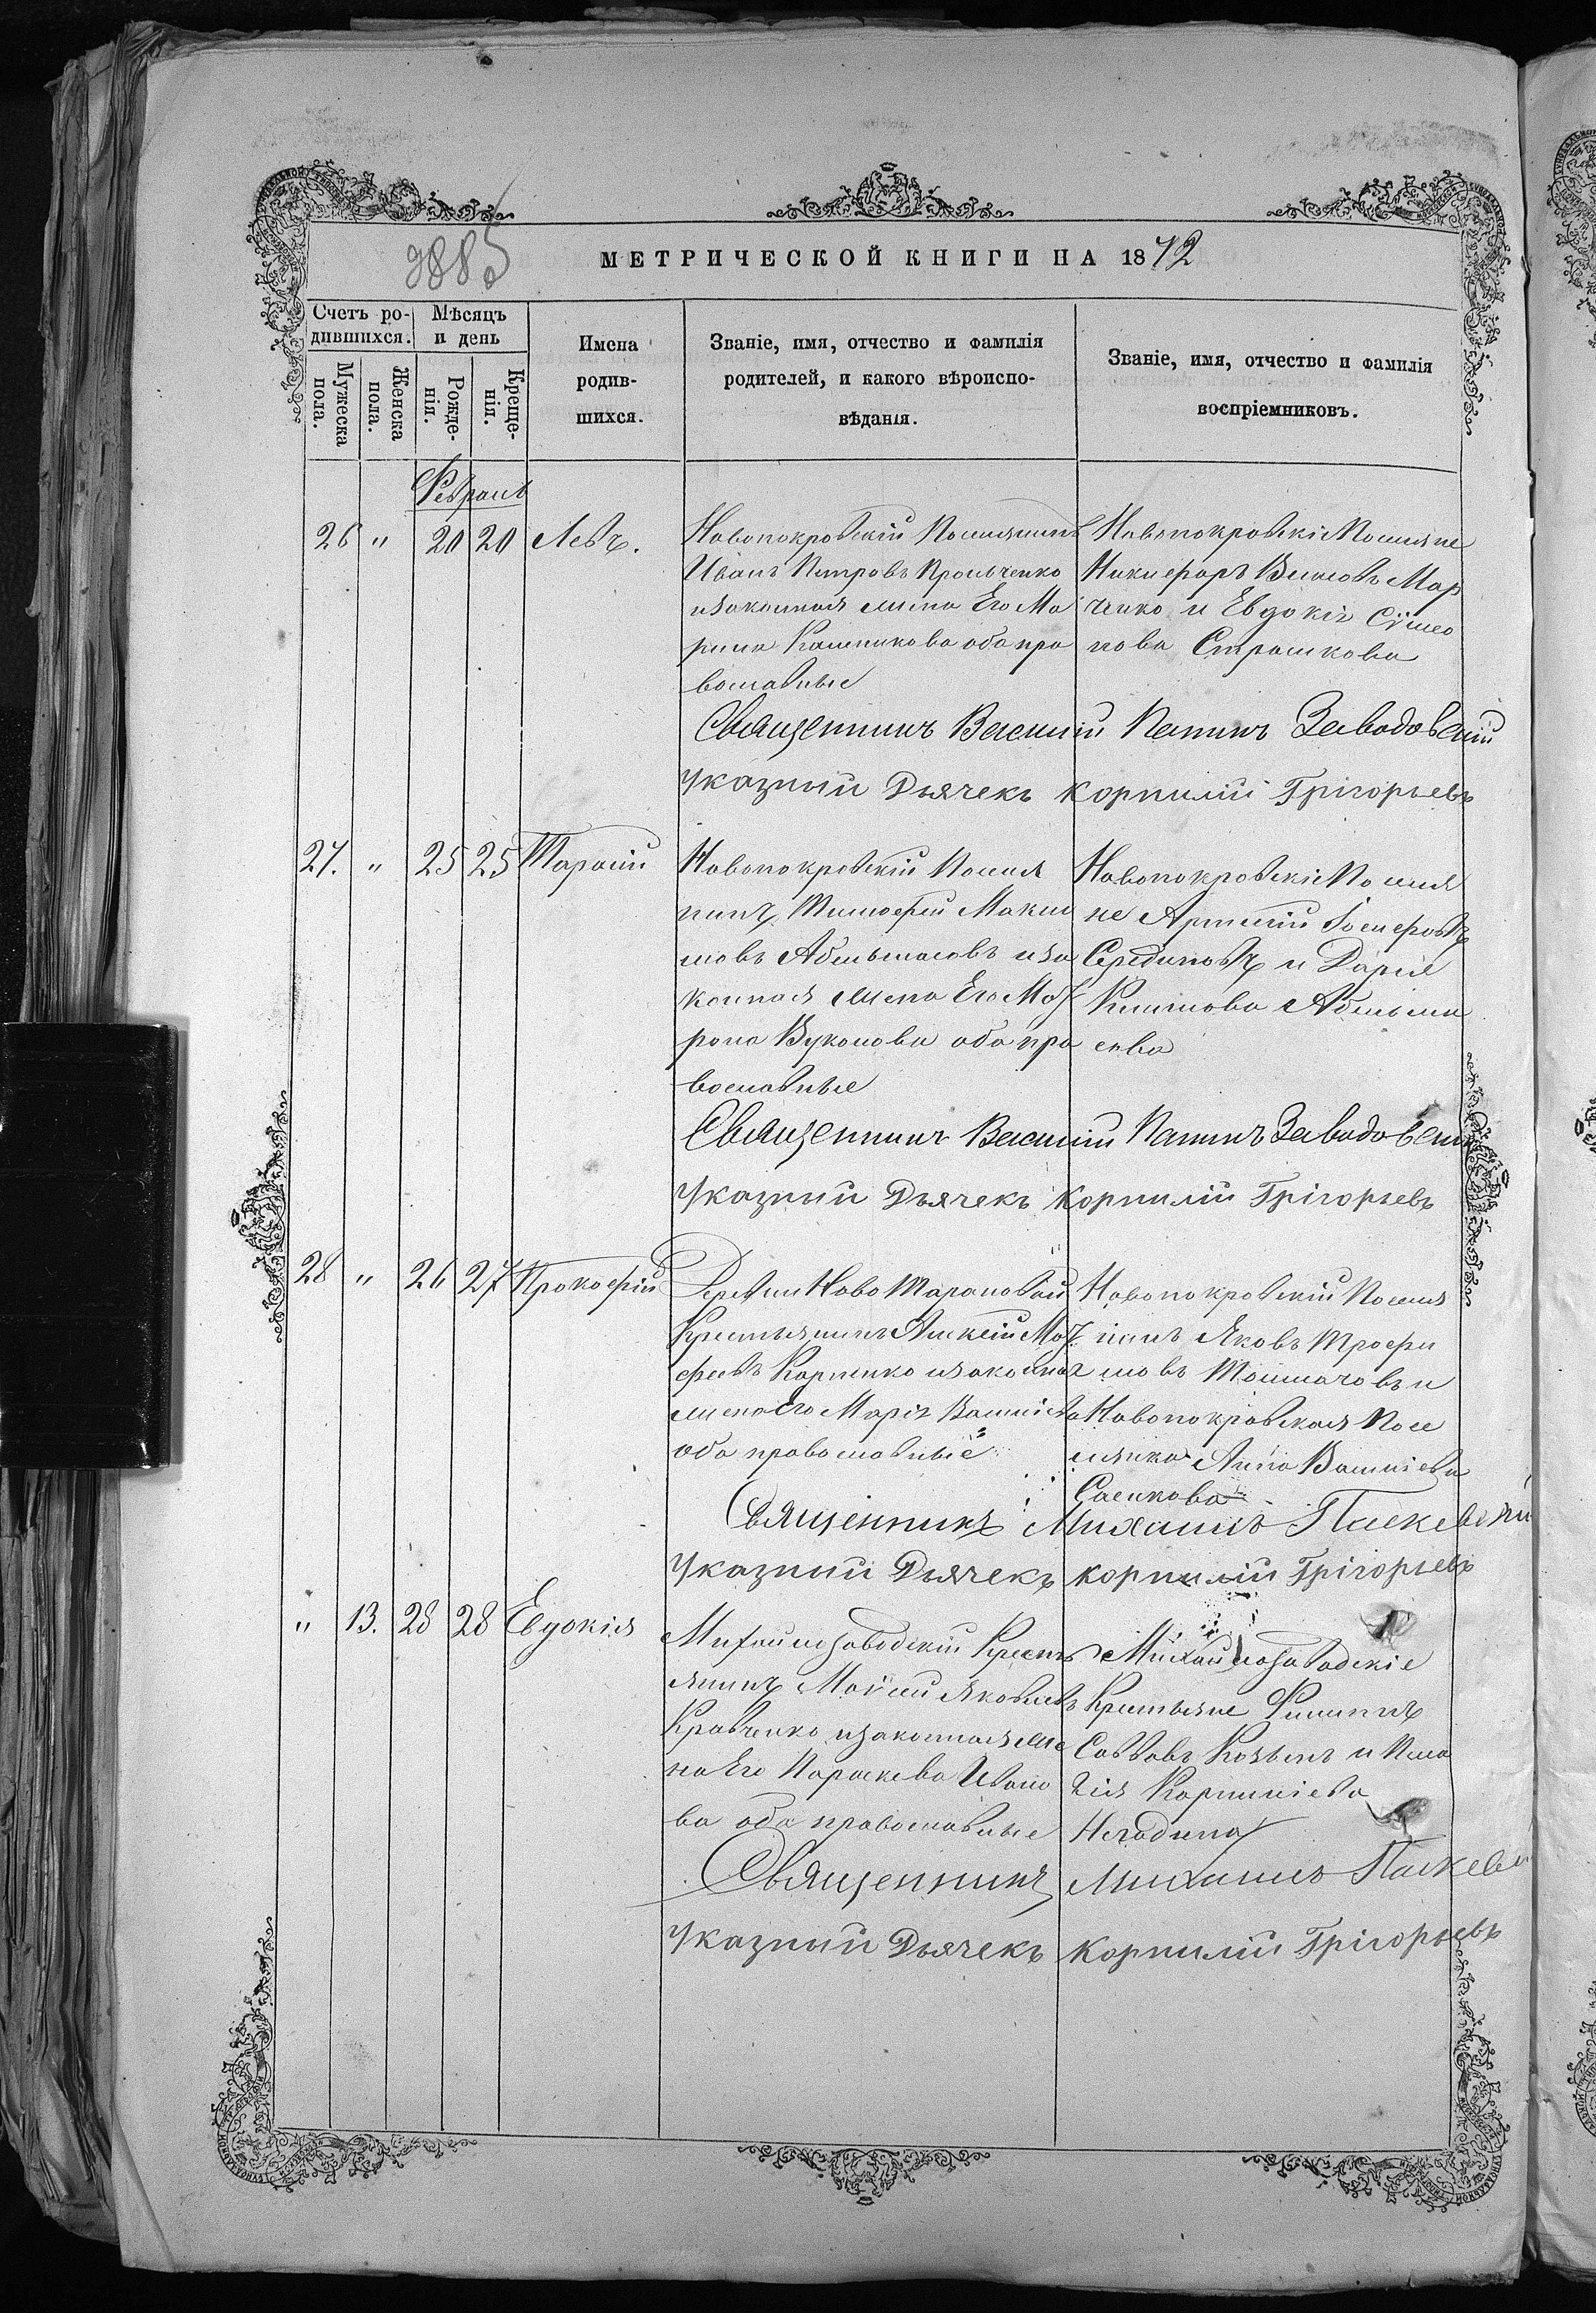 9885
МЕТРИЧЕСКОЙ КНИГИ НА 1872
Счетъ ро-
дившихся.
Мѣсяцъ
и день
Мужеска
пола.
Женска
пола.
Рожде-
нія.
Креще-
нія.
Имена
родив-
шихся.
Званіе, имя, отчество и фамилія
родителей, и какого вѣроиспо-
вѣданія.
Званіе, имя, отчество и фамилія
воспріемниковъ.
Февраль
26 " 20 20 Левъ.
Новопокровскій Поселянинъ
Иванъ Петровъ
изаконная жена Его Ма
рина Калитикова оба пра
вославные
Новопокровскіе Поселяне
Никифоръ Власовъ Мар
ченко и Евдокія Симео
нова Страшкова
Священникъ Василій Заводовскій
Указный Дьячекъ Корнилій Григорьевъ
27. " 25 25 Тарасій
Новопокровскій Поселя
нинъ Тимофей Макси
мовъ Абельмасовъ иза
конная жена Его Мат
рона Вуколова оба пра
вославные
Новопокровскіе Поселя
не Артемій
Серединовъ и Дарія
Климова Абельма
сова
Священникъ Василій Заводовскій
Указный Дьячекъ Корнилій Григорьевъ
28 " 26 27 Прокофій
Деревни Ново Тарановки
Крестьянинъ Алексій Мат
феевъ Карпенко изаконная
жена Его Марія Васильева
оба православные
Новопокровскій Поселя
нинъ Яковъ Трофи
мовъ Толмачовъ и
Новопокровская Посе
лянка Анна Васильева
Саенкова
Священникъ Михаилъ Паскевскій
Указный Дьячекъ Корнилій Григорьевъ
" 13. 28 28 Евдокія
Михайлозаводскій Кресть
янинъ Моисей Яковлевъ
Кравченко изаконная же
на Его Параскева Ивано
ва оба православные
Михайлозаводскіе
Крестьяне Филиппъ
Саввовъ Козыръ и Пела
гія Корниліева
Негодина
Священникъ Михаилъ
Указный Дьячекъ Корнилій Григорьевъ